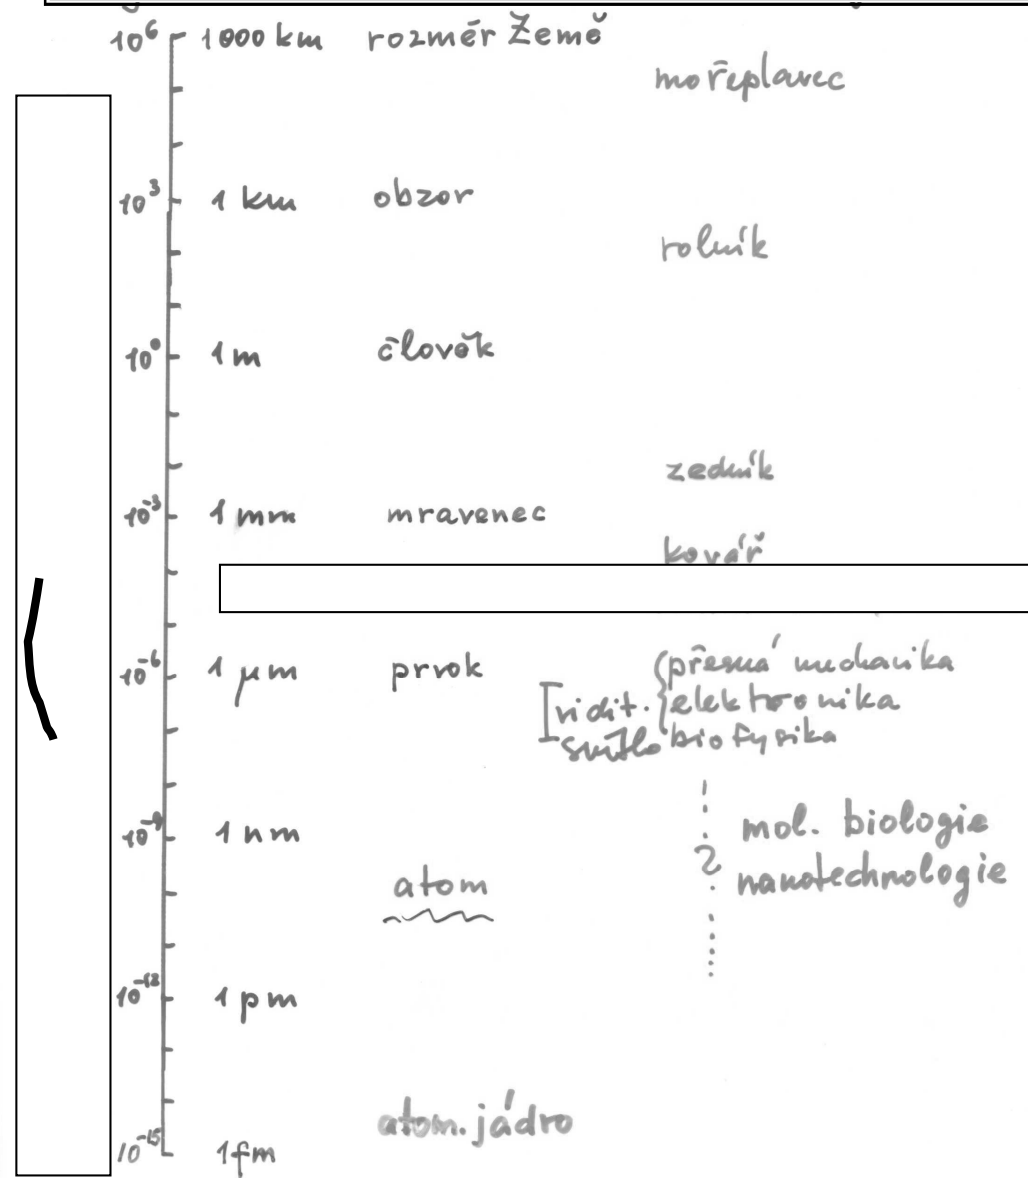 10⁶ 1000 km rozměr Země
mořeplavec
10³ 1 km obzor
rolník
10⁰ 1 m člověk
zedník
10⁻³ 1 mm mravenec
kovář
10⁻⁶ 1 μm prvok přesná mechanika
vidit. elektronika
světlo biofysika
10⁻⁹ 1 nm mol. biologie
? nanotechnologie
atom
10⁻¹² 1 pm
atom. jádro
10⁻¹⁵ 1 fm